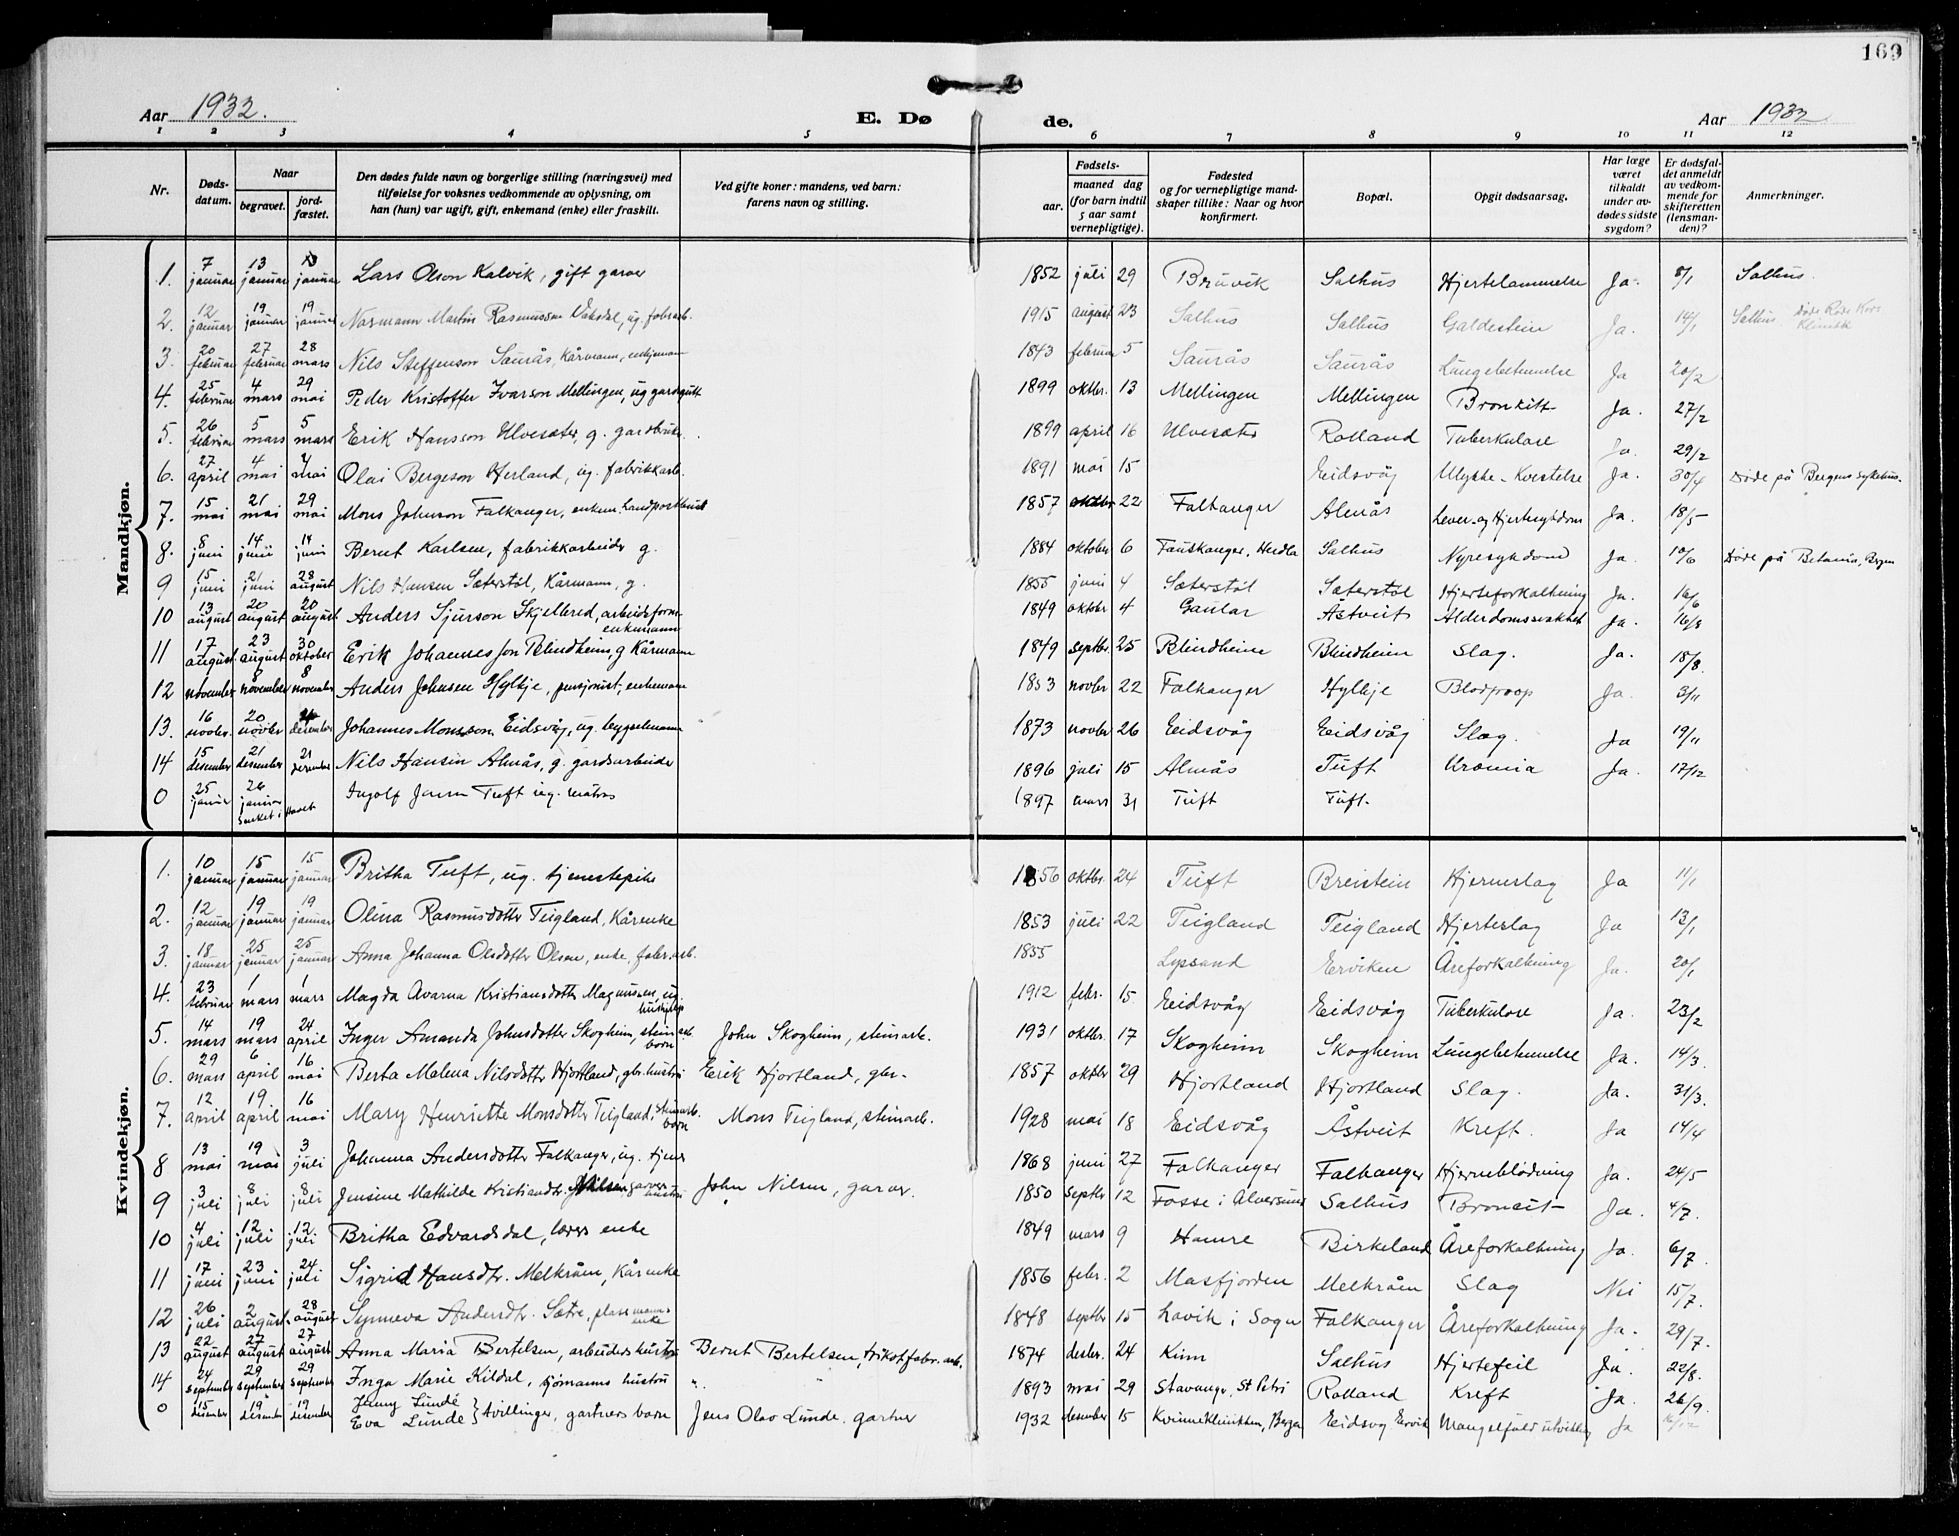 169
Aar 1932. E. Dø de. Aar 1932
1 2 3 4 5 6 7 8 9 10 11 12
Nr. Døds-datum. Naar begravet. jord-fæstet. Den dødes fulde navn og borgerlige stilling (næringsvei) med tilføielse for voksnes vedkommende av oplysning, om han (hun) var ugift, gift, enkemand (enke) eller fraskilt. Ved gifte koner: mandens, ved barn: farens navn og stilling. Fødsels- aar. maaned dag (for barn indtil 5 aar samt vernepligtige). Fødested og for vernepligtige mand-skaper tillike: Naar og hvor konfirmert. Bopæl. Opgit dødsaarsag. Har læge været tilkaldt under av-dødes sidste sygdom? Er dødsfal-det anmeldt av vedkom-mende for skifteretten (lensman-den)? Anmerkninger.
Mandkjøn.
1. 7 januar 13 januar 13 januar Lars Olson Kalvik, gift garver 1852 juli 29 Bruvik Salhus Hjertelammelse Ja. 8/1 Salhus.
2. 12 januar 19 januar 19 januar Normann Martin Rasmussen Vaksdal, ug. fabr.arb. 1915 august 23 Salhus Salhus Galdestein Ja. 14/1 Salhus. Døde Røde Kors Klinikk
3. 20 februar 27 februar 28 mars Nils Steffenson Saurås, Kårmann, enkjemann 1843 februar 5 Saurås Saurås Lungebetennelse Ja 20/2
4. 25 februar 4 mars 29 mai Peder Kristoffer Ivarson Mellingen, ug gardgutt 1899 oktbr. 13 Mellingen Mellingen Bronkitt Ja. 27/2
5. 26 februar 5 mars 5 mars Erik Hansson Ulvesæter, g. gardbruk. 1899 april 16 Ulvesæter Rolland Tuberkulose Ja. 29/2
6. 27 april 4 mai 4 mai Olai Bergeson Herland, ug. fabrikkarb. 1891 mai 15 Eidsvåg Ulykke - Kvestelse Ja. 30/4 Døde på Bergens sykehus.
7. 15 mai 21 mai 29 mai Mons Johnson Falkanger, enkem. Landpostbud 1857 oktbr 22 Falkanger Almås Lever- og Hjertesykdom Ja. 18/5
8. 8 juni 14 juni 14 juni Bernt Karlsen, fabrikkarbeider g. 1884 oktober 6 Fauskanger, Herdla Salhus Nyresykdom Ja 10/6 Døde på Betania, Bergen
9 15 juni 21 juni 28 august Nils Hansen Sæterstøl, Kårmann, g. 1855 juni 4 Sæterstøl Sæterstøl Hjerteforkalkning Ja. 16/6
10 13 august 20 august 20 august Anders Sjurson Skjelbred, arbeidsform. enkemann 1849 oktbr 4 Gaular Åstveit Alderdomssvakhet Ja. 16/8
11 17 august 23 august 30 oktober Erik Johannesson Blindheim, g Kårmann 1849 septbr. 25 Blindheim Blindheim Slag. Ja. 18/8.
12 november 8 november 8 november Anders Johnsen Hylkje, pensjonist, enkemann 1853 novbr 22 Falkanger Hylkje Blodpropp Ja. 3/11
13. 16 novbr. 20 novbr desember Johannes Monsson Eidsvåg, ug. 1873 novbr 26 Eidsvåg Eidsvåg Slag. Ja 19/11
14 15 desember 21 desember 21 desember Nils Hansen Almås, g. gardsarbeider 1896 juli 15 Almås Tuft Uræmia Ja. 17/12
0 25 januar 26 januar Senket i Havet Ingolf Tuft ug. matros 1897 mars 31 Tuft Tuft.
Kvindekjøn.
1. 10 januar 15 januar 15 januar Britha Tuft, ug. tjenestepike 1856 oktbr. 24 Tuft Breistein Hjerneslag Ja 11/1
2. 12 januar 19 januar 19 januar Olina Rasmusdotter Teigland, Kårenke 1853 juli 22 Teigland Teigland Hjerteslag Ja 13/1
3. 18 januar 25 januar 25 januar Anna Johanna Olsdotter Olsen, enke, fabr.arb. 1855 Lyssand Erviken Åreforkalkning Ja. 20/1
4. 23 februar 1 mars 1 mars Magda Avarna Kristiansdotter Magnussen, ug. 1912 febr. 15 Eidsvåg Eidsvåg Tuberkulose Ja. 23/2
5. 14 mars 19 mars 24 april Inger Amanda Johnsdotter Skogheim, steinarb. born John Skogheim, steinarb. 1931 oktbr. 17 Skogheim Skogheim Lungebetennelse Ja. 14/3.
6. 29 mars 6 april 16 mai Berta Malena Nilsdotter Hjortland, gbr. hustru Erik Hjortland, gbr. 1857 oktbr 29 Hjortland Hjortland Slag. Ja. 31/3.
7. 12 april 19 april 16 mai Mary Henriette Monsdotter Teigland, steinarb. born Mons Teigland, steinarb. 1928 mai 18 Eidsvåg Åstveit Kreft. Ja 14/4
8 13 mai 19 mai 3 juli Johanna Andersdotter Falkanger, ug. tjener 1868 juni 27 Falkanger Falkanger Hjerneblødning Ja. 24/5
9 3 juli 8 juli 8 juli Jensine Mathilde Kristiandtr. Nilsen garver hustru John Nilsen, garver. 1850 septbr 12 Fosse i Alversund Salhus Broncit Ja. 4/7.
10 4 juli 12 juli 12 juli Britha Edvardsdal, lærers enke 1849 mars 9 Hamre Birkeland Åreforkalkning Ja. 6/7.
11 17 juni 23 juni 24 juli Sigrid Hansdtr. Melkråen, Kårenke 1856 febr. 2 Masfjorden Melkråen Slag Nei 15/7.
12 26 juli 2 august 28 august Synneva Andersdtr. Sætre, plassmanns enke 1848 septbr 15 Lavik i Sogn Falkanger Åreforkalkning Ja. 29/7.
13 22 august 27 august 27 august Anna Maria Bertelsen, arbeiders hustru Bernt Bertelsen, trikotfabr. arb. 1874 desbr. 24 Kinn Salhus Hjertefeil Ja. 22/8.
14 24 september 29 september 29 september Inga Marie Kildal, sjømanns hustru 1893 mai 29 Stavanger, St Petri Rolland Kreft Ja. 26/9.
0 15 desember 19 desember 19 desember Jenny Lunde Eva Lunde } tvillinger, gartners born Jens Olav Lunde. gartner 1932 desember 15 Kvinneklinikken, Bergen Eidsvåg Ervik Mangelfuld utvikling Ja 16/12